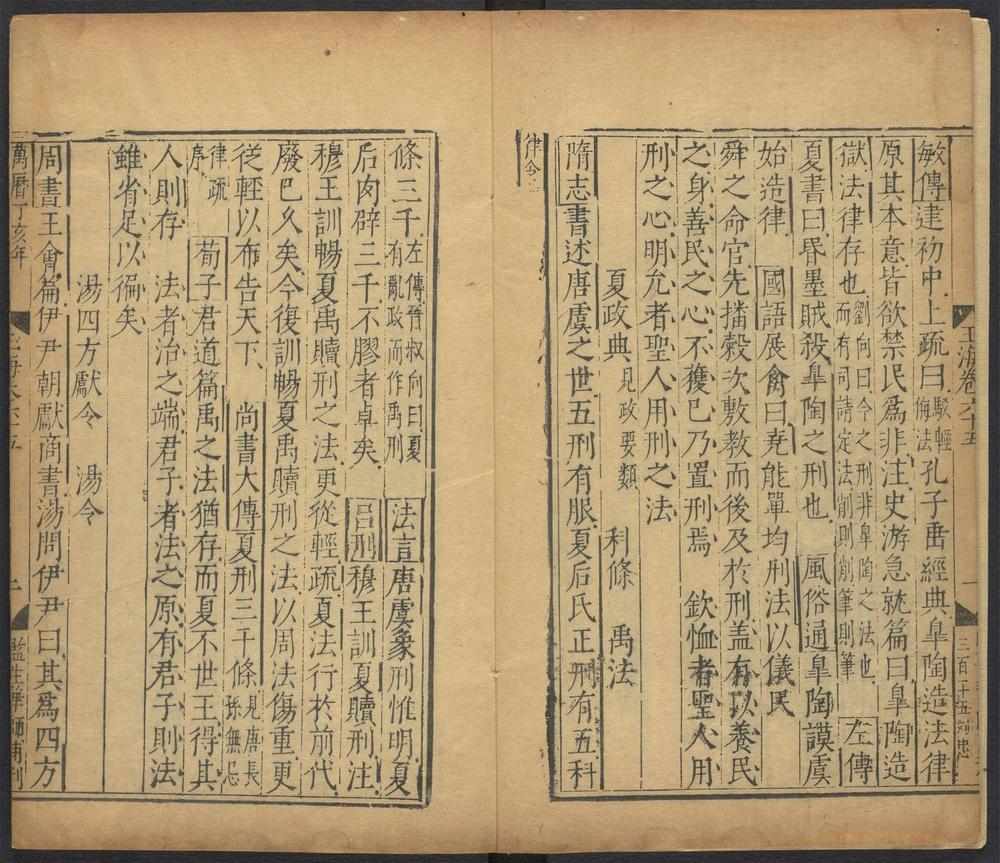 玉海卷六十五
一
三百十五 刘忠
敏傳建初中上疏曰駁輕侮法孔子垂經典臯陶造法律
原其本意皆欲禁民爲非注史游急就篇曰臯陶造
獄法律存也劉向曰今之刑非臯陶之法也而有司請定法削則削筆則筆左傳
夏書曰昏墨賊殺臯陶之刑也 風俗通臯陶謨虞
始造律 國語展禽曰堯能單均刑法以儀民
舜之命官先播穀次敷教而後及於刑盖有以養民
之身善民之心不獲已乃置刑焉 欽恤者聖人用
刑之心明允者聖人用刑之法
夏政典見政要類 科條 禹法
隋志書述唐虞之世五刑有服夏后氏正刑有五科
律令
條三千左傳晉叔向曰夏有亂政而作禹刑 法言唐虞象刑惟明夏
后肉辟三千不膠者卓矣 呂刑穆王訓夏贖刑注
穆王訓暢夏禹贖刑之法更從輕疏夏法行於前代
廢已久矣今復訓暢夏禹贖刑之法以周法傷重更
從輕以布告天下 尚書大傳夏刑三千條見唐長孫無忌
律疏序 荀子君道篇禹之法猶存而夏不世王得其
人則存 法者治之端君子者法之原有君子則法
雖省足以徧矣
湯四方獻令 湯令
周書王會篇伊尹朝獻商書湯問伊尹曰其爲四方
萬曆丁亥年
玉海卷六十五
二
監生